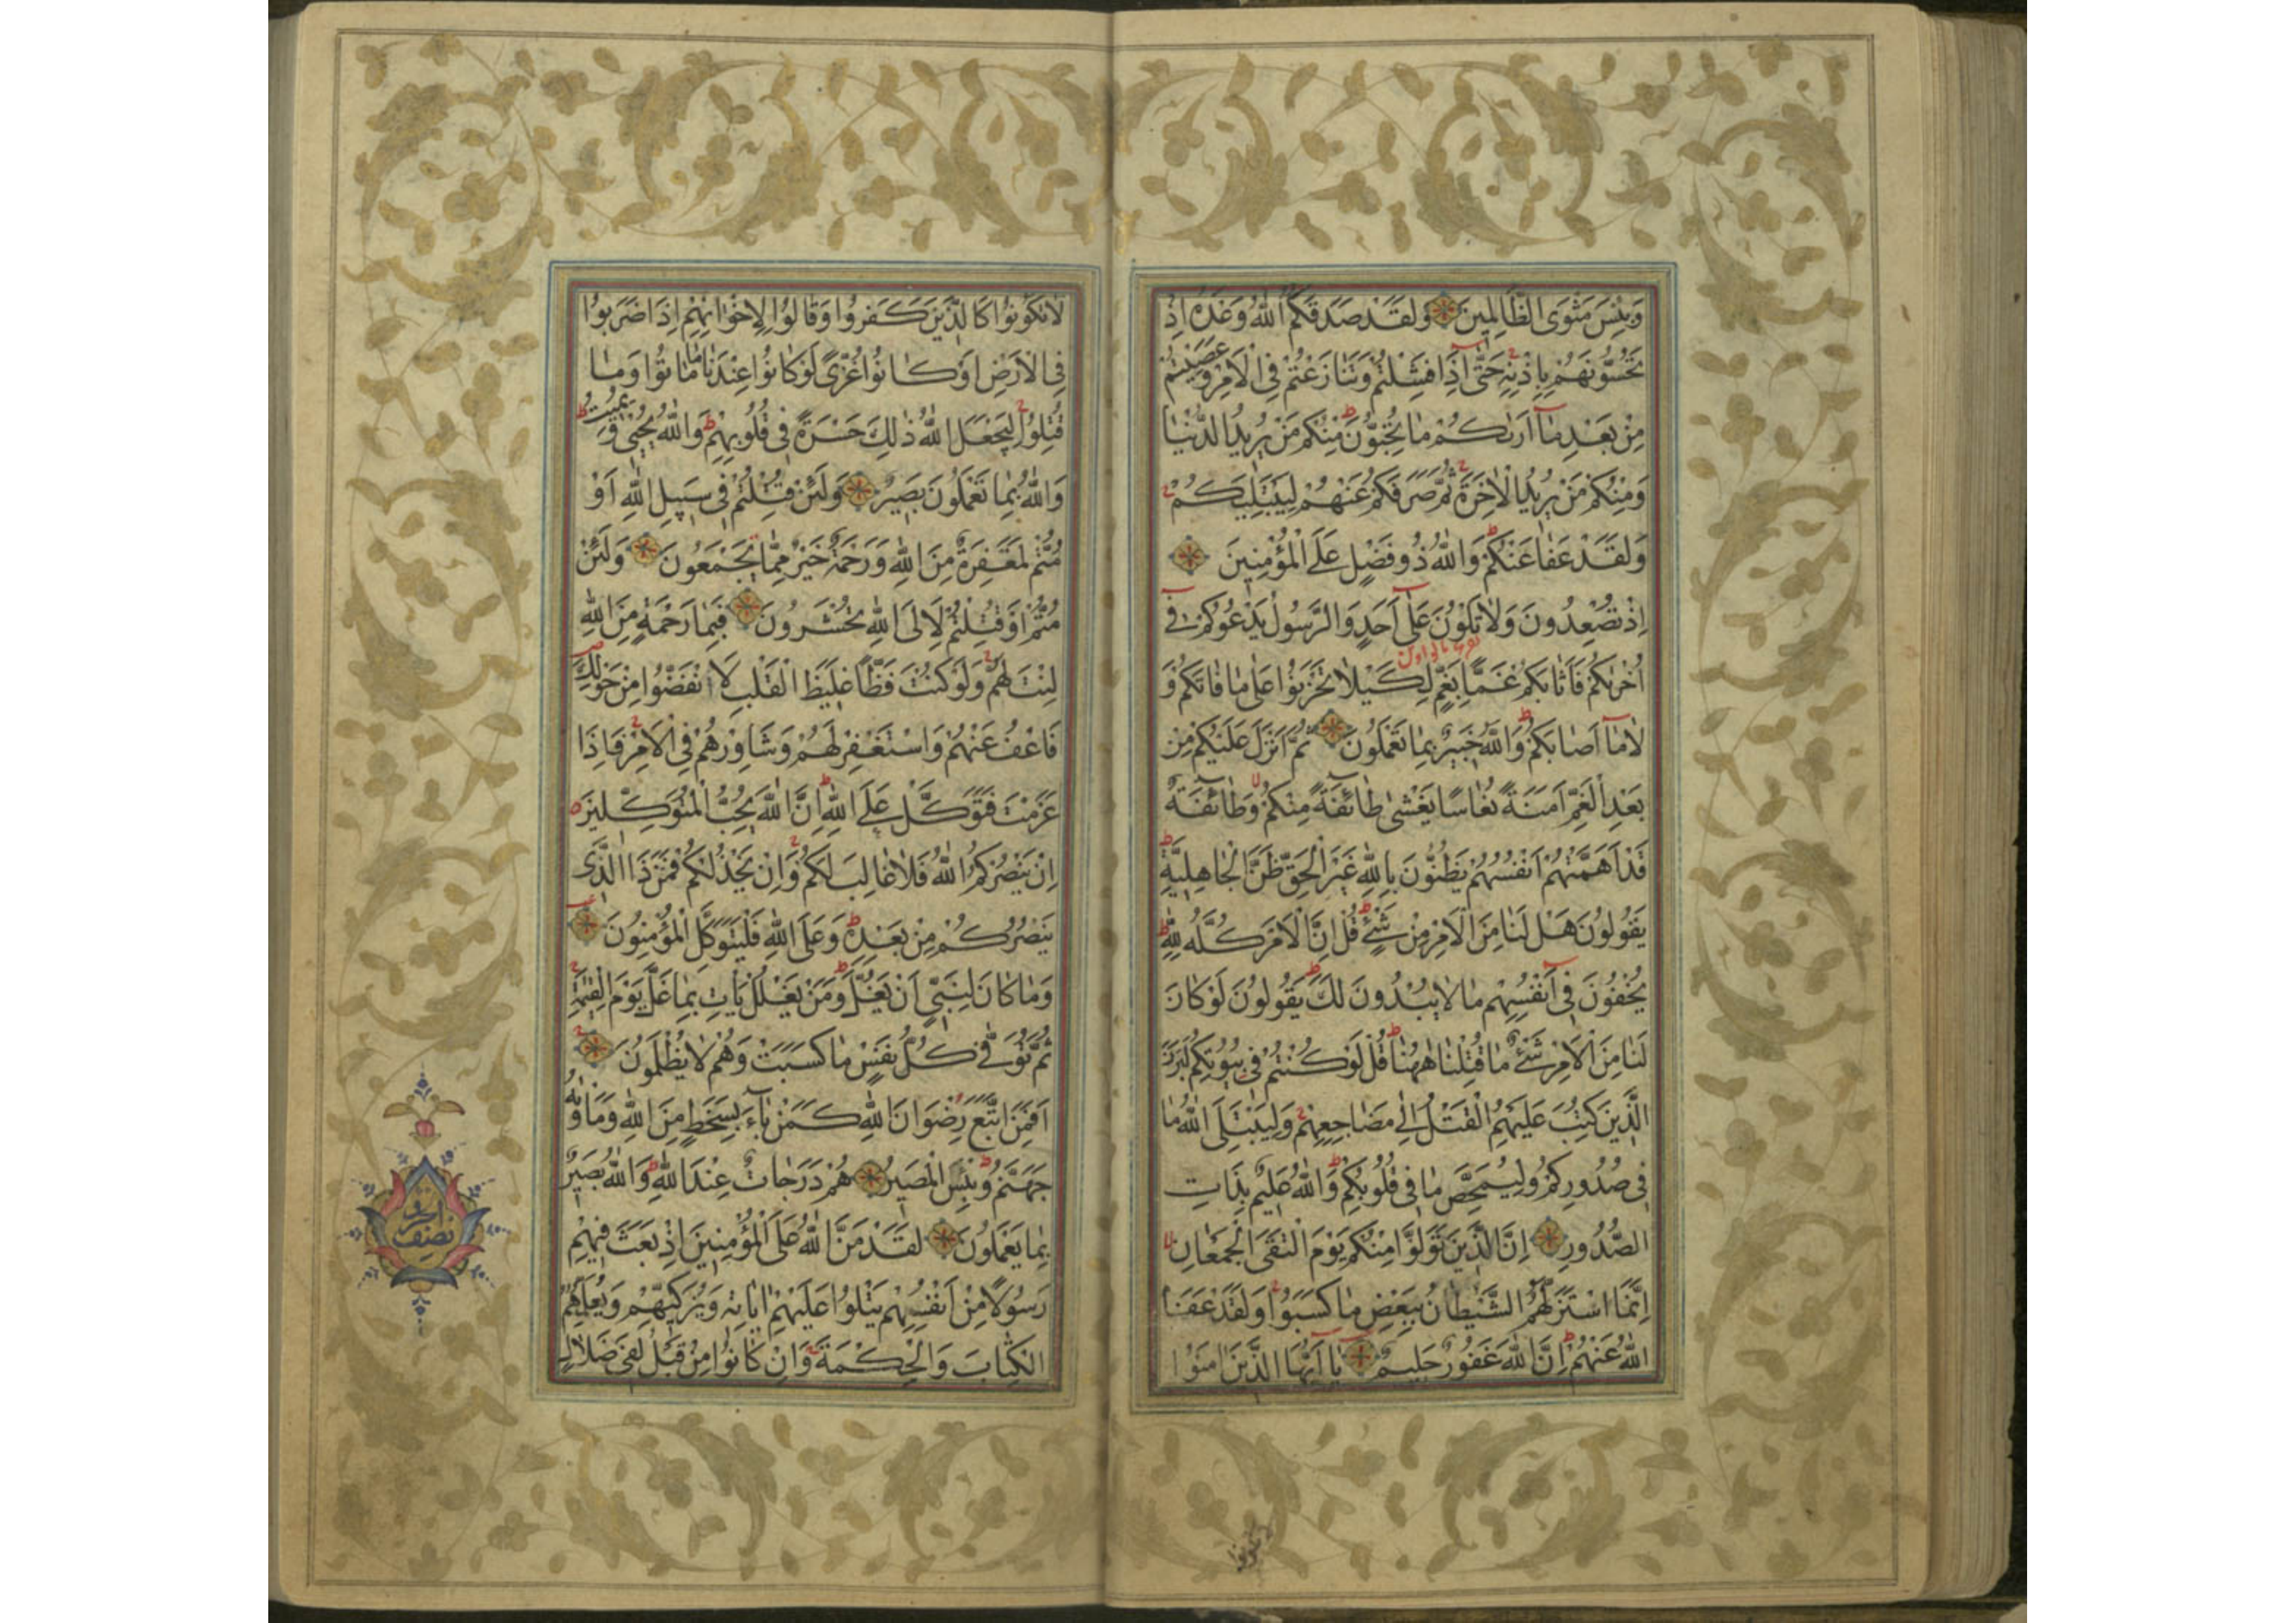 وَبِئْسَ مَثْوَى الظَّالِمِينَ وَلَقَدْ صَدَقَكُمُ اللّٰهُ وَعْدَهُ اِذْ
تَحُسُّونَهُمْ بِاِذْنِهِ حَتّٰى اِذَا فَشِلْتُمْ وَتَنَازَعْتُمْ فِى الْاَمْرِ وَعَصَيْتُمْ
مِنْ بَعْدِ مَا اَرٰيكُمْ مَا تُحِبُّونَ مِنْكُمْ مَنْ يُرِيدُ الدُّنْيَا
وَمِنْكُمْ مَنْ يُرِيدُ الْاٰخِرَةَ ثُمَّ صَرَفَكُمْ عَنْهُمْ لِيَبْتَلِيَكُمْ
وَلَقَدْ عَفَا عَنْكُمْ وَاللّٰهُ ذُو فَضْلٍ عَلَى الْمُؤْمِنِينَ
اِذْ تُصْعِدُونَ وَلَا تَلْوُنَ عَلٰى اَحَدٍ وَالرَّسُولُ يَدْعُوكُمْ فِى
اُخْرٰيكُمْ فَاَثَابَكُمْ غَمًّا بِغَمٍّ لِكَيْلَا تَحْزَنُوا عَلٰى مَا فَاتَكُمْ وَ
لَا مَا اَصَابَكُمْ وَاللّٰهُ خَبِيرٌ بِمَا تَعْمَلُونَ ثُمَّ اَنْزَلَ عَلَيْكُمْ مِنْ
بَعْدِ الْغَمِّ اَمَنَةً نُعَاسًا يَغْشٰى طَائِفَةً مِنْكُمْ وَطَائِفَةٌ
قَدْ اَهَمَّتْهُمْ اَنْفُسُهُمْ يَظُنُّونَ بِاللّٰهِ غَيْرَ الْحَقِّ ظَنَّ الْجَاهِلِيَّةِ
يَقُولُونَ هَلْ لَنَا مِنَ الْاَمْرِ مِنْ شَىْءٍ قُلْ اِنَّ الْاَمْرَ كُلَّهُ لِلّٰهِ
يُخْفُونَ فِى اَنْفُسِهِمْ مَا لَا يُبْدُونَ لَكَ يَقُولُونَ لَوْ كَانَ
لَنَا مِنَ الْاَمْرِ شَىْءٌ مَا قُتِلْنَا هٰهُنَا قُلْ لَوْ كُنْتُمْ فِى بُيُوتِكُمْ لَبَرَزَ
الَّذِينَ كُتِبَ عَلَيْهِمُ الْقَتْلُ اِلٰى مَضَاجِعِهِمْ وَلِيَبْتَلِىَ اللّٰهُ مَا
فِى صُدُورِكُمْ وَلِيُمَحِّصَ مَا فِى قُلُوبِكُمْ وَاللّٰهُ عَلِيمٌ بِذَاتِ
الصُّدُورِ اِنَّ الَّذِينَ تَوَلَّوْا مِنْكُمْ يَوْمَ الْتَقَى الْجَمْعَانِ
اِنَّمَا اسْتَزَلَّهُمُ الشَّيْطَانُ بِبَعْضِ مَا كَسَبُوا وَلَقَدْ عَفَا
اللّٰهُ عَنْهُمْ اِنَّ اللّٰهَ غَفُورٌ حَلِيمٌ يَا اَيُّهَا الَّذِينَ اٰمَنُوا
لَا تَكُونُوا كَالَّذِينَ كَفَرُوا وَقَالُوا لِاِخْوَانِهِمْ اِذَا ضَرَبُوا
فِى الْاَرْضِ اَوْ كَانُوا غُزًّى لَوْ كَانُوا عِنْدَنَا مَا مَاتُوا وَمَا
قُتِلُوا لِيَجْعَلَ اللّٰهُ ذٰلِكَ حَسْرَةً فِى قُلُوبِهِمْ وَاللّٰهُ يُحْيِى وَيُمِيتُ
وَاللّٰهُ بِمَا تَعْمَلُونَ بَصِيرٌ وَلَئِنْ قُتِلْتُمْ فِى سَبِيلِ اللّٰهِ اَوْ
مُتُّمْ لَمَغْفِرَةٌ مِنَ اللّٰهِ وَرَحْمَةٌ خَيْرٌ مِمَّا يَجْمَعُونَ وَلَئِنْ
مُتُّمْ اَوْ قُتِلْتُمْ لَاِلَى اللّٰهِ تُحْشَرُونَ فَبِمَا رَحْمَةٍ مِنَ اللّٰهِ
لِنْتَ لَهُمْ وَلَوْ كُنْتَ فَظًّا غَلِيظَ الْقَلْبِ لَانْفَضُّوا مِنْ حَوْلِكَ
فَاعْفُ عَنْهُمْ وَاسْتَغْفِرْ لَهُمْ وَشَاوِرْهُمْ فِى الْاَمْرِ فَاِذَا
عَزَمْتَ فَتَوَكَّلْ عَلَى اللّٰهِ اِنَّ اللّٰهَ يُحِبُّ الْمُتَوَكِّلِينَ
اِنْ يَنْصُرْكُمُ اللّٰهُ فَلَا غَالِبَ لَكُمْ وَاِنْ يَخْذُلْكُمْ فَمَنْ ذَا الَّذِى
يَنْصُرُكُمْ مِنْ بَعْدِهِ وَعَلَى اللّٰهِ فَلْيَتَوَكَّلِ الْمُؤْمِنُونَ
وَمَا كَانَ لِنَبِىٍّ اَنْ يَغُلَّ وَمَنْ يَغْلُلْ يَأْتِ بِمَا غَلَّ يَوْمَ الْقِيٰمَةِ
ثُمَّ تُوَفّٰى كُلُّ نَفْسٍ مَا كَسَبَتْ وَهُمْ لَا يُظْلَمُونَ
اَفَمَنِ اتَّبَعَ رِضْوَانَ اللّٰهِ كَمَنْ بَاءَ بِسَخَطٍ مِنَ اللّٰهِ وَمَأْوٰيهُ
جَهَنَّمُ وَبِئْسَ الْمَصِيرُ هُمْ دَرَجَاتٌ عِنْدَ اللّٰهِ وَاللّٰهُ بَصِيرٌ
بِمَا يَعْمَلُونَ لَقَدْ مَنَّ اللّٰهُ عَلَى الْمُؤْمِنِينَ اِذْ بَعَثَ فِيهِمْ
رَسُولًا مِنْ اَنْفُسِهِمْ يَتْلُوا عَلَيْهِمْ اٰيَاتِهِ وَيُزَكِّيهِمْ وَيُعَلِّمُهُمُ
الْكِتَابَ وَالْحِكْمَةَ وَاِنْ كَانُوا مِنْ قَبْلُ لَفِى ضَلَالٍ
نصف